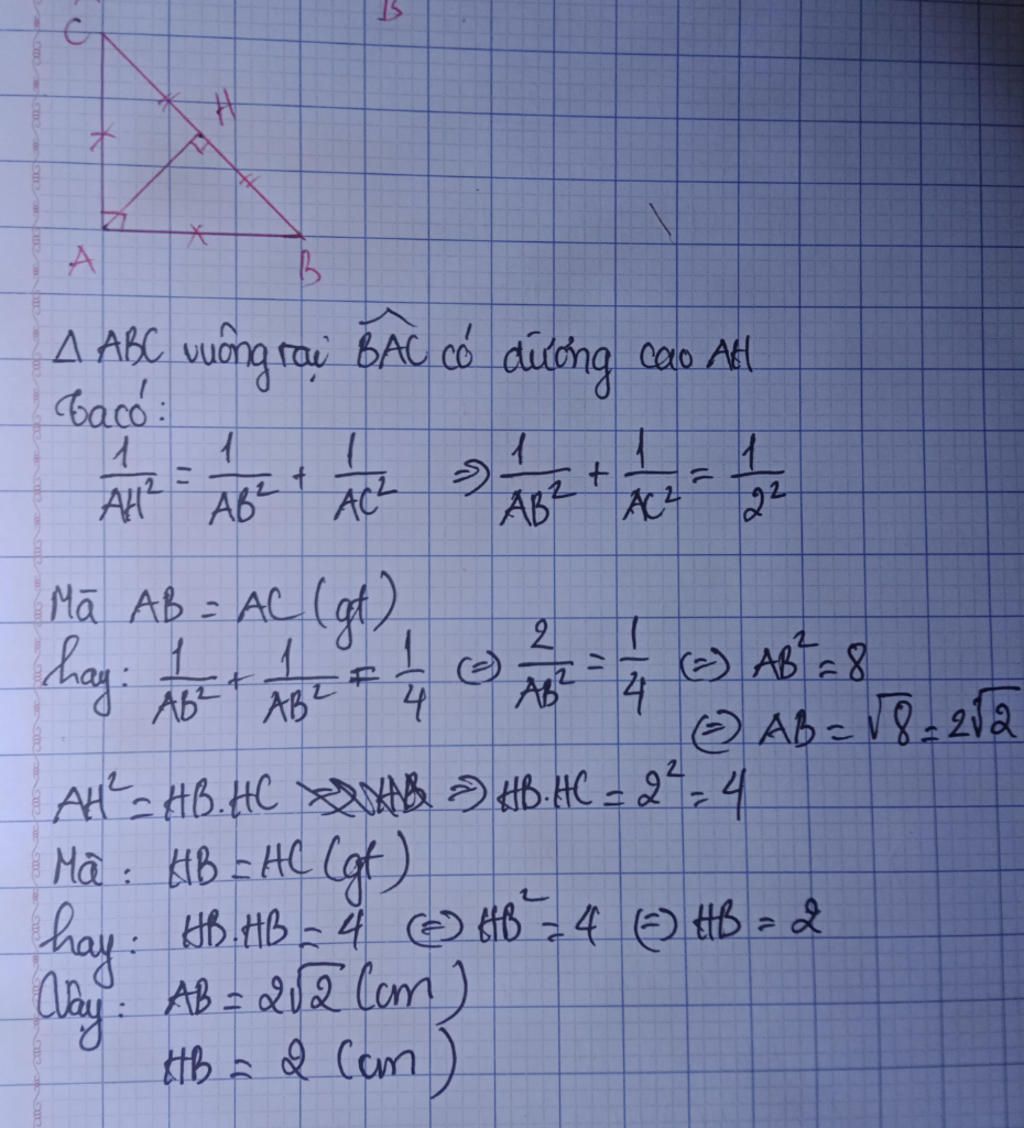 B
C
H
A
B
Δ ABC vuông tại \widehat{BAC} có đường cao AH
Ta có:
\frac{1}{AH^2} = \frac{1}{AB^2} + \frac{1}{AC^2} ⇒ \frac{1}{AB^2} + \frac{1}{AC^2} = \frac{1}{2^2}
Mà AB = AC (gt)
hay: \frac{1}{AB^2} + \frac{1}{AB^2} = \frac{1}{4} ⇔ \frac{2}{AB^2} = \frac{1}{4} ⇔ AB^2 = 8
⇔ AB = √8 = 2√2
AH^2 = HB.HC ⇒ HB.HC = 2^2 = 4
Mà: HB = HC (gt)
hay: HB.HB = 4 ⇔ HB^2 = 4 ⇔ HB = 2
Vậy: AB = 2√2 (cm)
HB = 2 (cm)